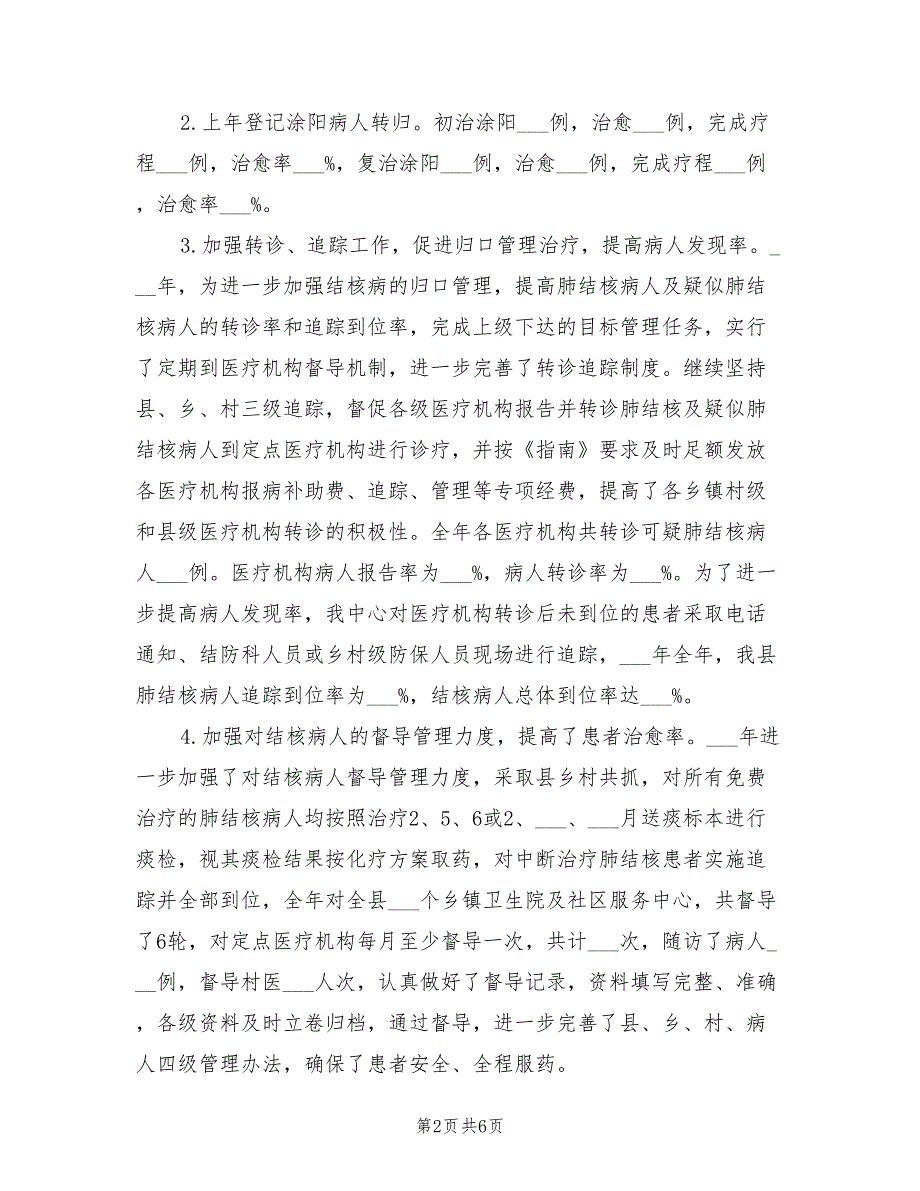 2.上年登记涂阳病人转归。初治涂阳___例，治愈___例，完成疗
程___例，治愈率___%，复治涂阳___例，治愈___例，完成疗程___例
，治愈率___%。
3.加强转诊、追踪工作，促进归口管理治疗，提高病人发现率。_
__年，为进一步加强结核病的归口管理，提高肺结核病人及疑似肺结
核病人的转诊率和追踪到位率，完成上级下达的目标管理任务，实行
了定期到医疗机构督导机制，进一步完善了转诊追踪制度。继续坚持
县、乡、村三级追踪，督促各级医疗机构报告并转诊肺结核及疑似肺
结核病人到定点医疗机构进行诊疗，并按《指南》要求及时足额发放
各医疗机构报病补助费、追踪、管理等专项经费，提高了各乡镇村级
和县级医疗机构转诊的积极性。全年各医疗机构共转诊可疑肺结核病
人___例。医疗机构病人报告率为___%，病人转诊率为___%。为了进一
步提高病人发现率，我中心对医疗机构转诊后未到位的患者采取电话
通知、结防科人员或乡村级防保人员现场进行追踪，___年全年，我县
肺结核病人追踪到位率为___%，结核病人总体到位率达___%。
4.加强对结核病人的督导管理力度，提高了患者治愈率。___年进
一步加强了对结核病人督导管理力度，采取县乡村共抓，对所有免费
治疗的肺结核病人均按照治疗2、5、6或2、___、___月送痰标本进行
痰检，视其痰检结果按化疗方案取药，对中断治疗肺结核患者实施追
踪并全部到位，全年对全县___个乡镇卫生院及社区服务中心，共督导
了6轮，对定点医疗机构每月至少督导一次，共计___次，随访了病人_
__例，督导村医___人次，认真做好了督导记录，资料填写完整、准确
，各级资料及时立卷归档，通过督导，进一步完善了县、乡、村、病
人四级管理办法，确保了患者安全、全程服药。
第2页 共6页